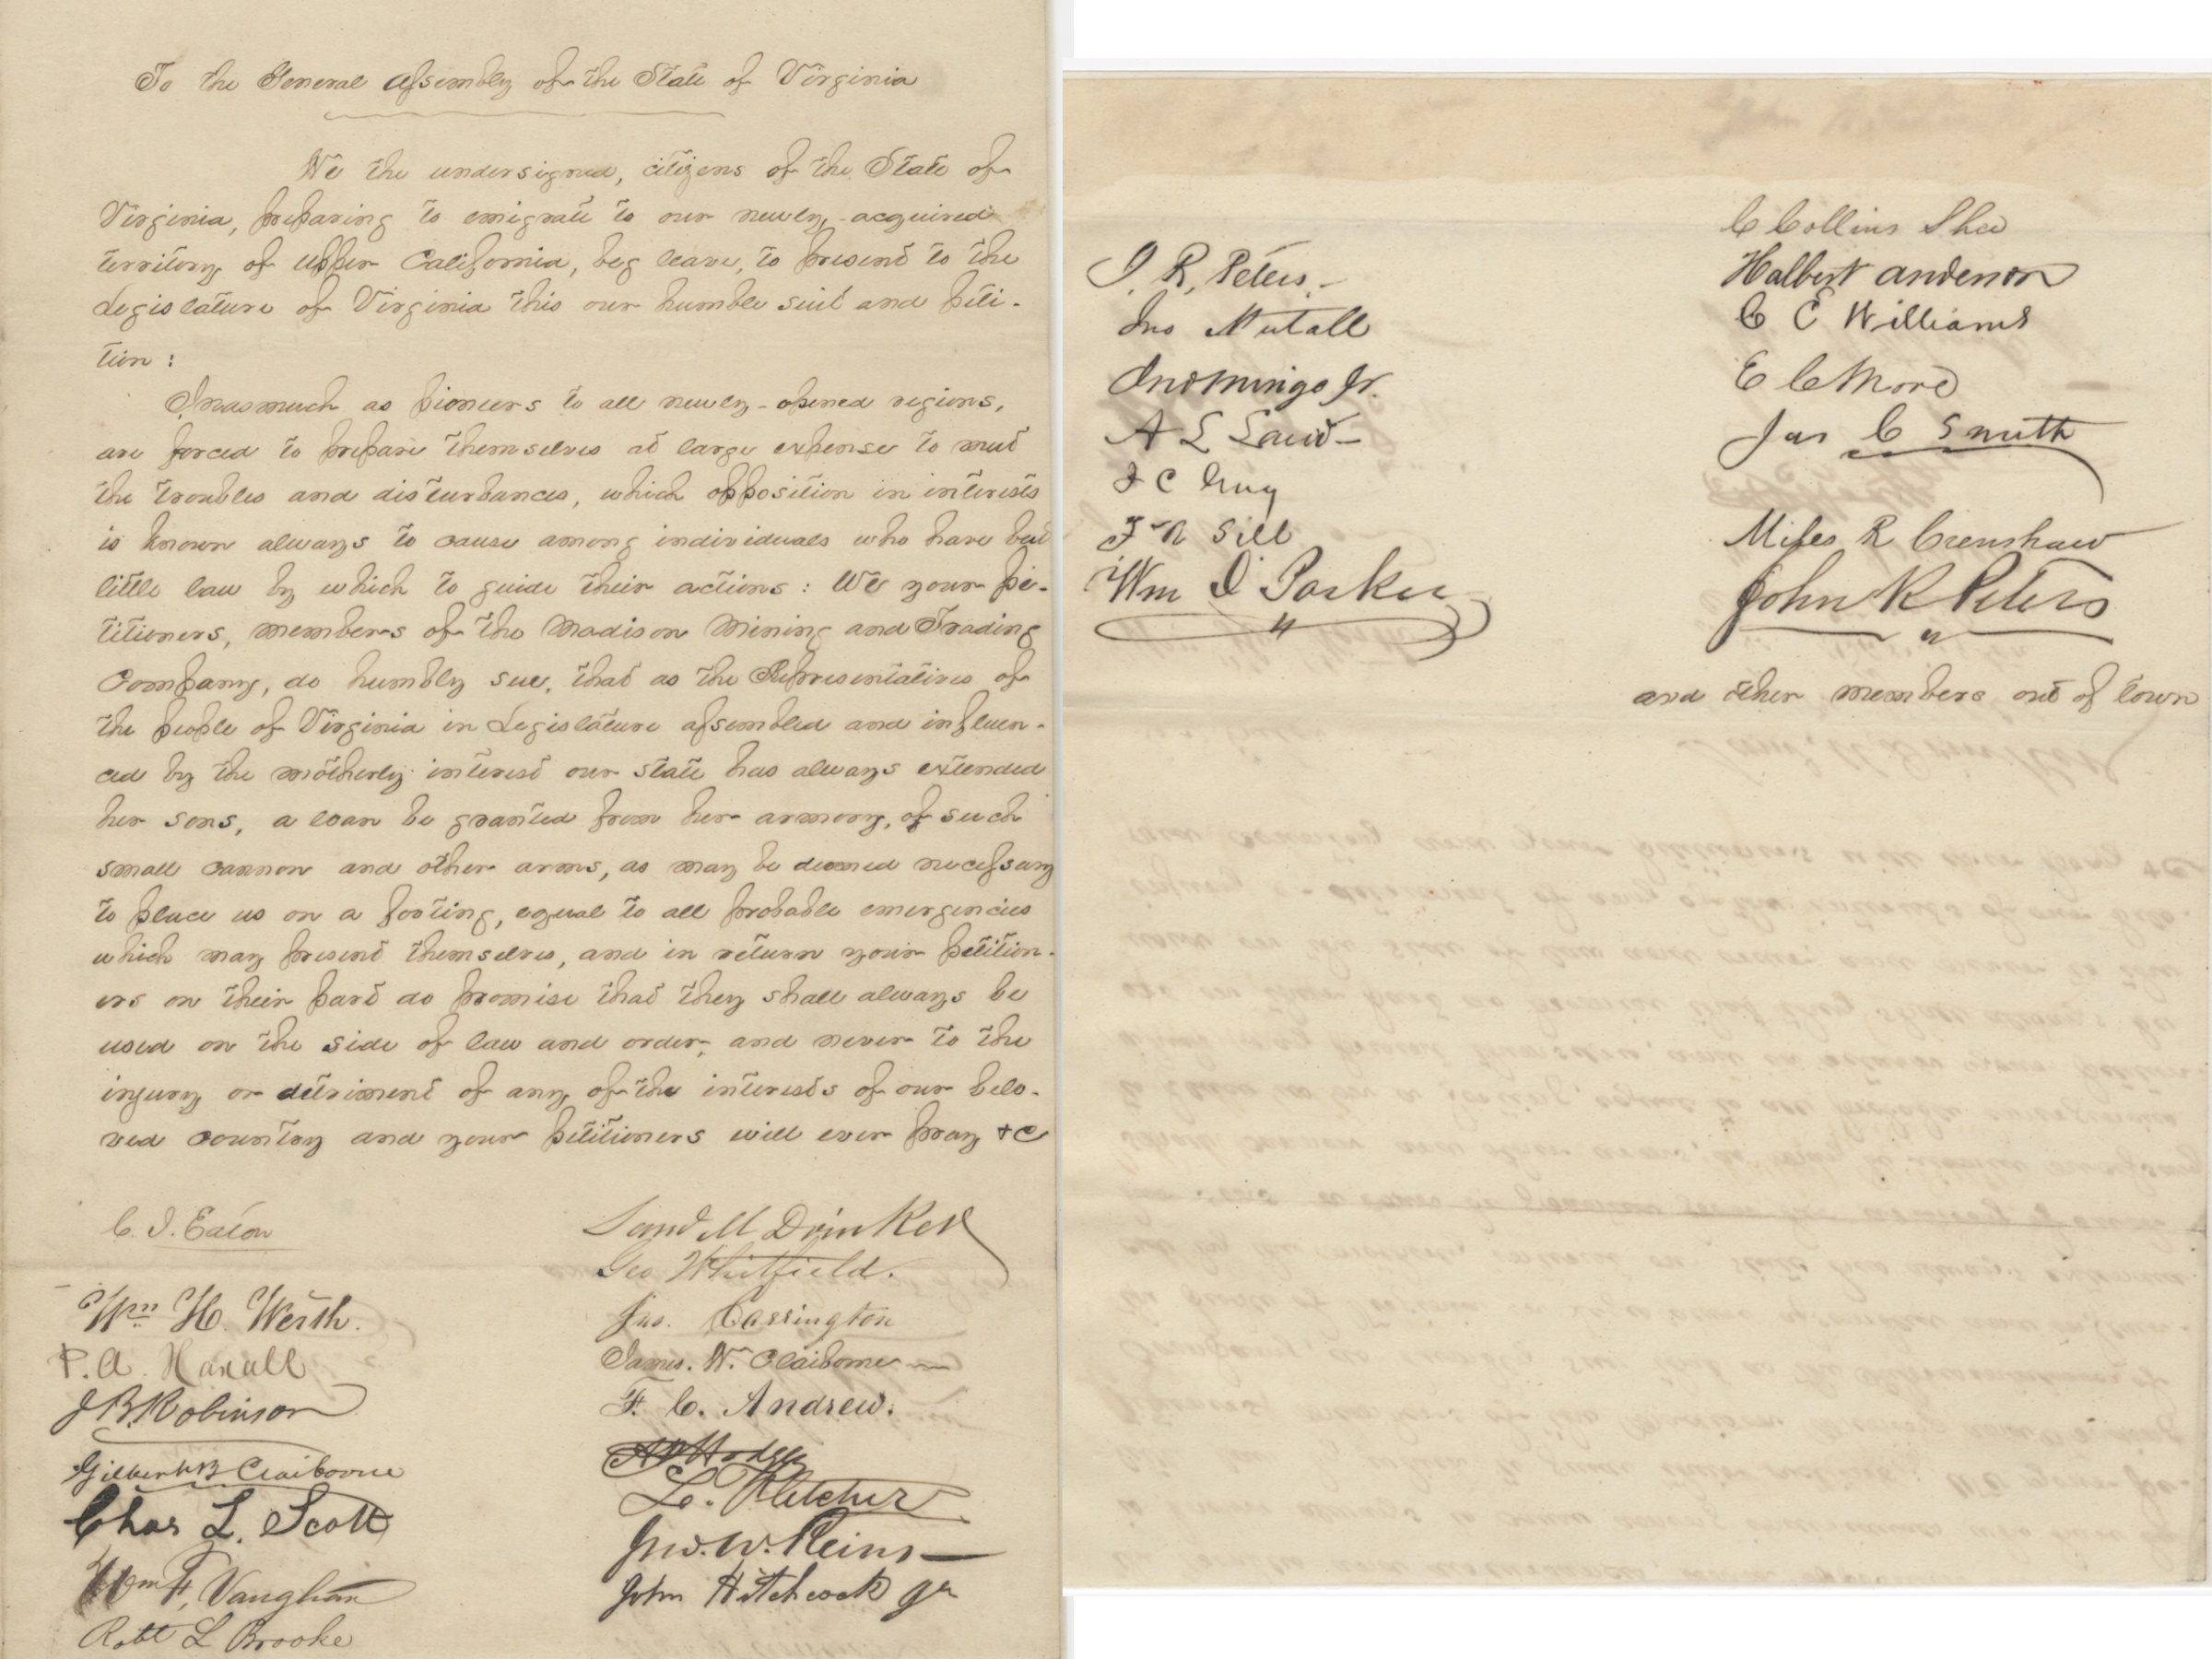 To the General Assembly of the State of Virginia
We the undersigned, citizens of the State of
Virginia, preparing to emigrate to our newly-acquired
territory of Upper California, beg leave, to present to the
Legislature of Virginia this our humble suit and peti-
tion:
Inasmuch as pioneers to all newly-opened regions,
are forced to prepare themselves at large expense to meet
the troubles and disturbances, which opposition in interests
is known always to cause among individuals who have but
little law by which to guide their actions: We your pe-
titioners, members of the Madison Mining and Trading
Company, do humbly sue, that as the Representatives of
the people of Virginia in Legislature assembled and influen-
ced by the motherly interest our state has always extended
her sons, a loan be granted from her armory, of such
small cannon and other arms, as may be deemed necessary
to place us on a footing, equal to all probable emergencies
which may present themselves, and in return your petition-
ers on their part do promise that they shall always be
used on the side of law and order, and never to the
injury or detriment of any of the interests of our belo-
ved country and your petitioners will ever pray &C
C. J. Eaton
Wm H. Werth.
P. A. Haxall
J B. Robinson
Gilbert Claiborne
Chas L. Scott
Wm F, Vaughan
Robt L Brooke
Saml M Drinker
Geo Whitfield.
Jno. Carrington
James. W. Claiborne
F. C. Andrew.
L. Fletcher
Jno. W. Reins
John Hitchcock Jr
J. R. Peters
Jno Nutall
Jno Mingo Jr.
A L
J C
F A Sill
Wm D Parker
C Collins Shee
Halbert Anderson
C E Williams
E C More
Jas C Smith
Miles R Crenshaw
John R Peters
and other members out of town